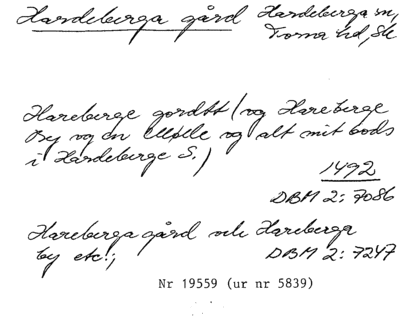 Hardeberga gård Hardeberga sn,
Torna hd, Sk
Hareberge gordtt (og Hareberge
By og en Mølle og alt mit Gods
i Hardeberge S.)
1492
DBM 2: 7086
Hareberga gård och Hareberga
by etc.; DBM 2: 7247
Nr 19559 (ur nr 5839)